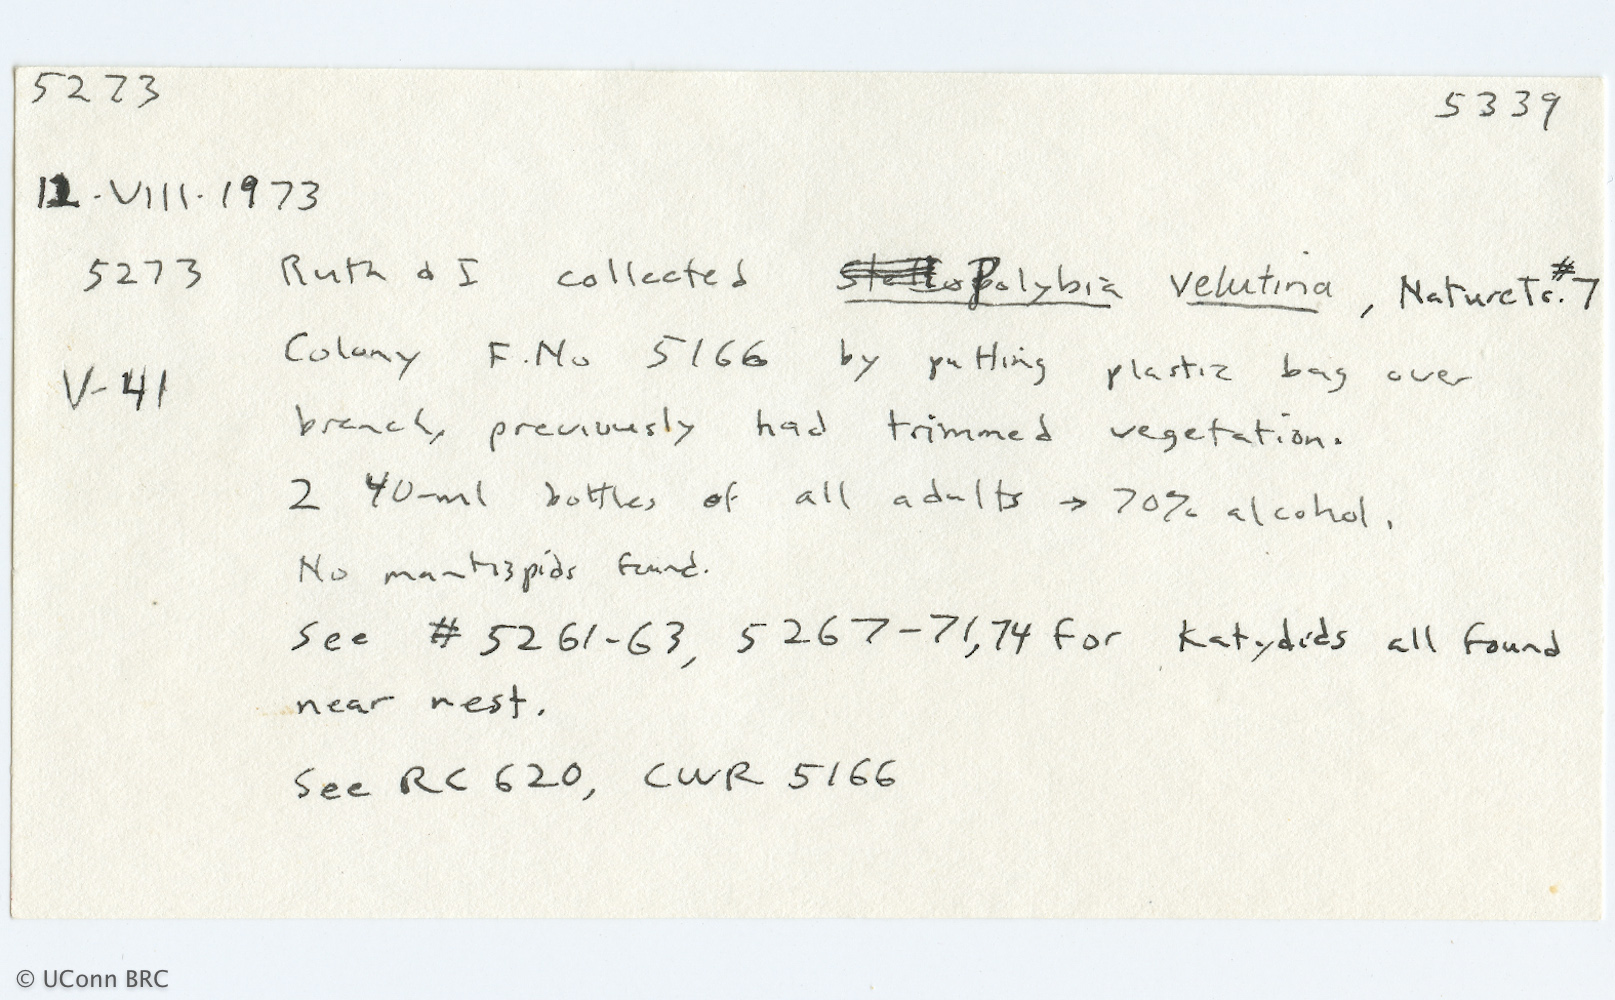 5273 5339
12-VIII-1973
5273 Ruth & I collected Polybia velutina, Nature Tr. #7
Colony F.No 5166 by putting plastic bag over
V-41
branch, previously had trimmed vegetation.
2 40-ml bottles of all adults → 70% alcohol.
No mantispids found.
See # 5261-63, 5267-71,74 for katydids all found
near nest.
See RC 620, CWR 5166
© UConn BRC